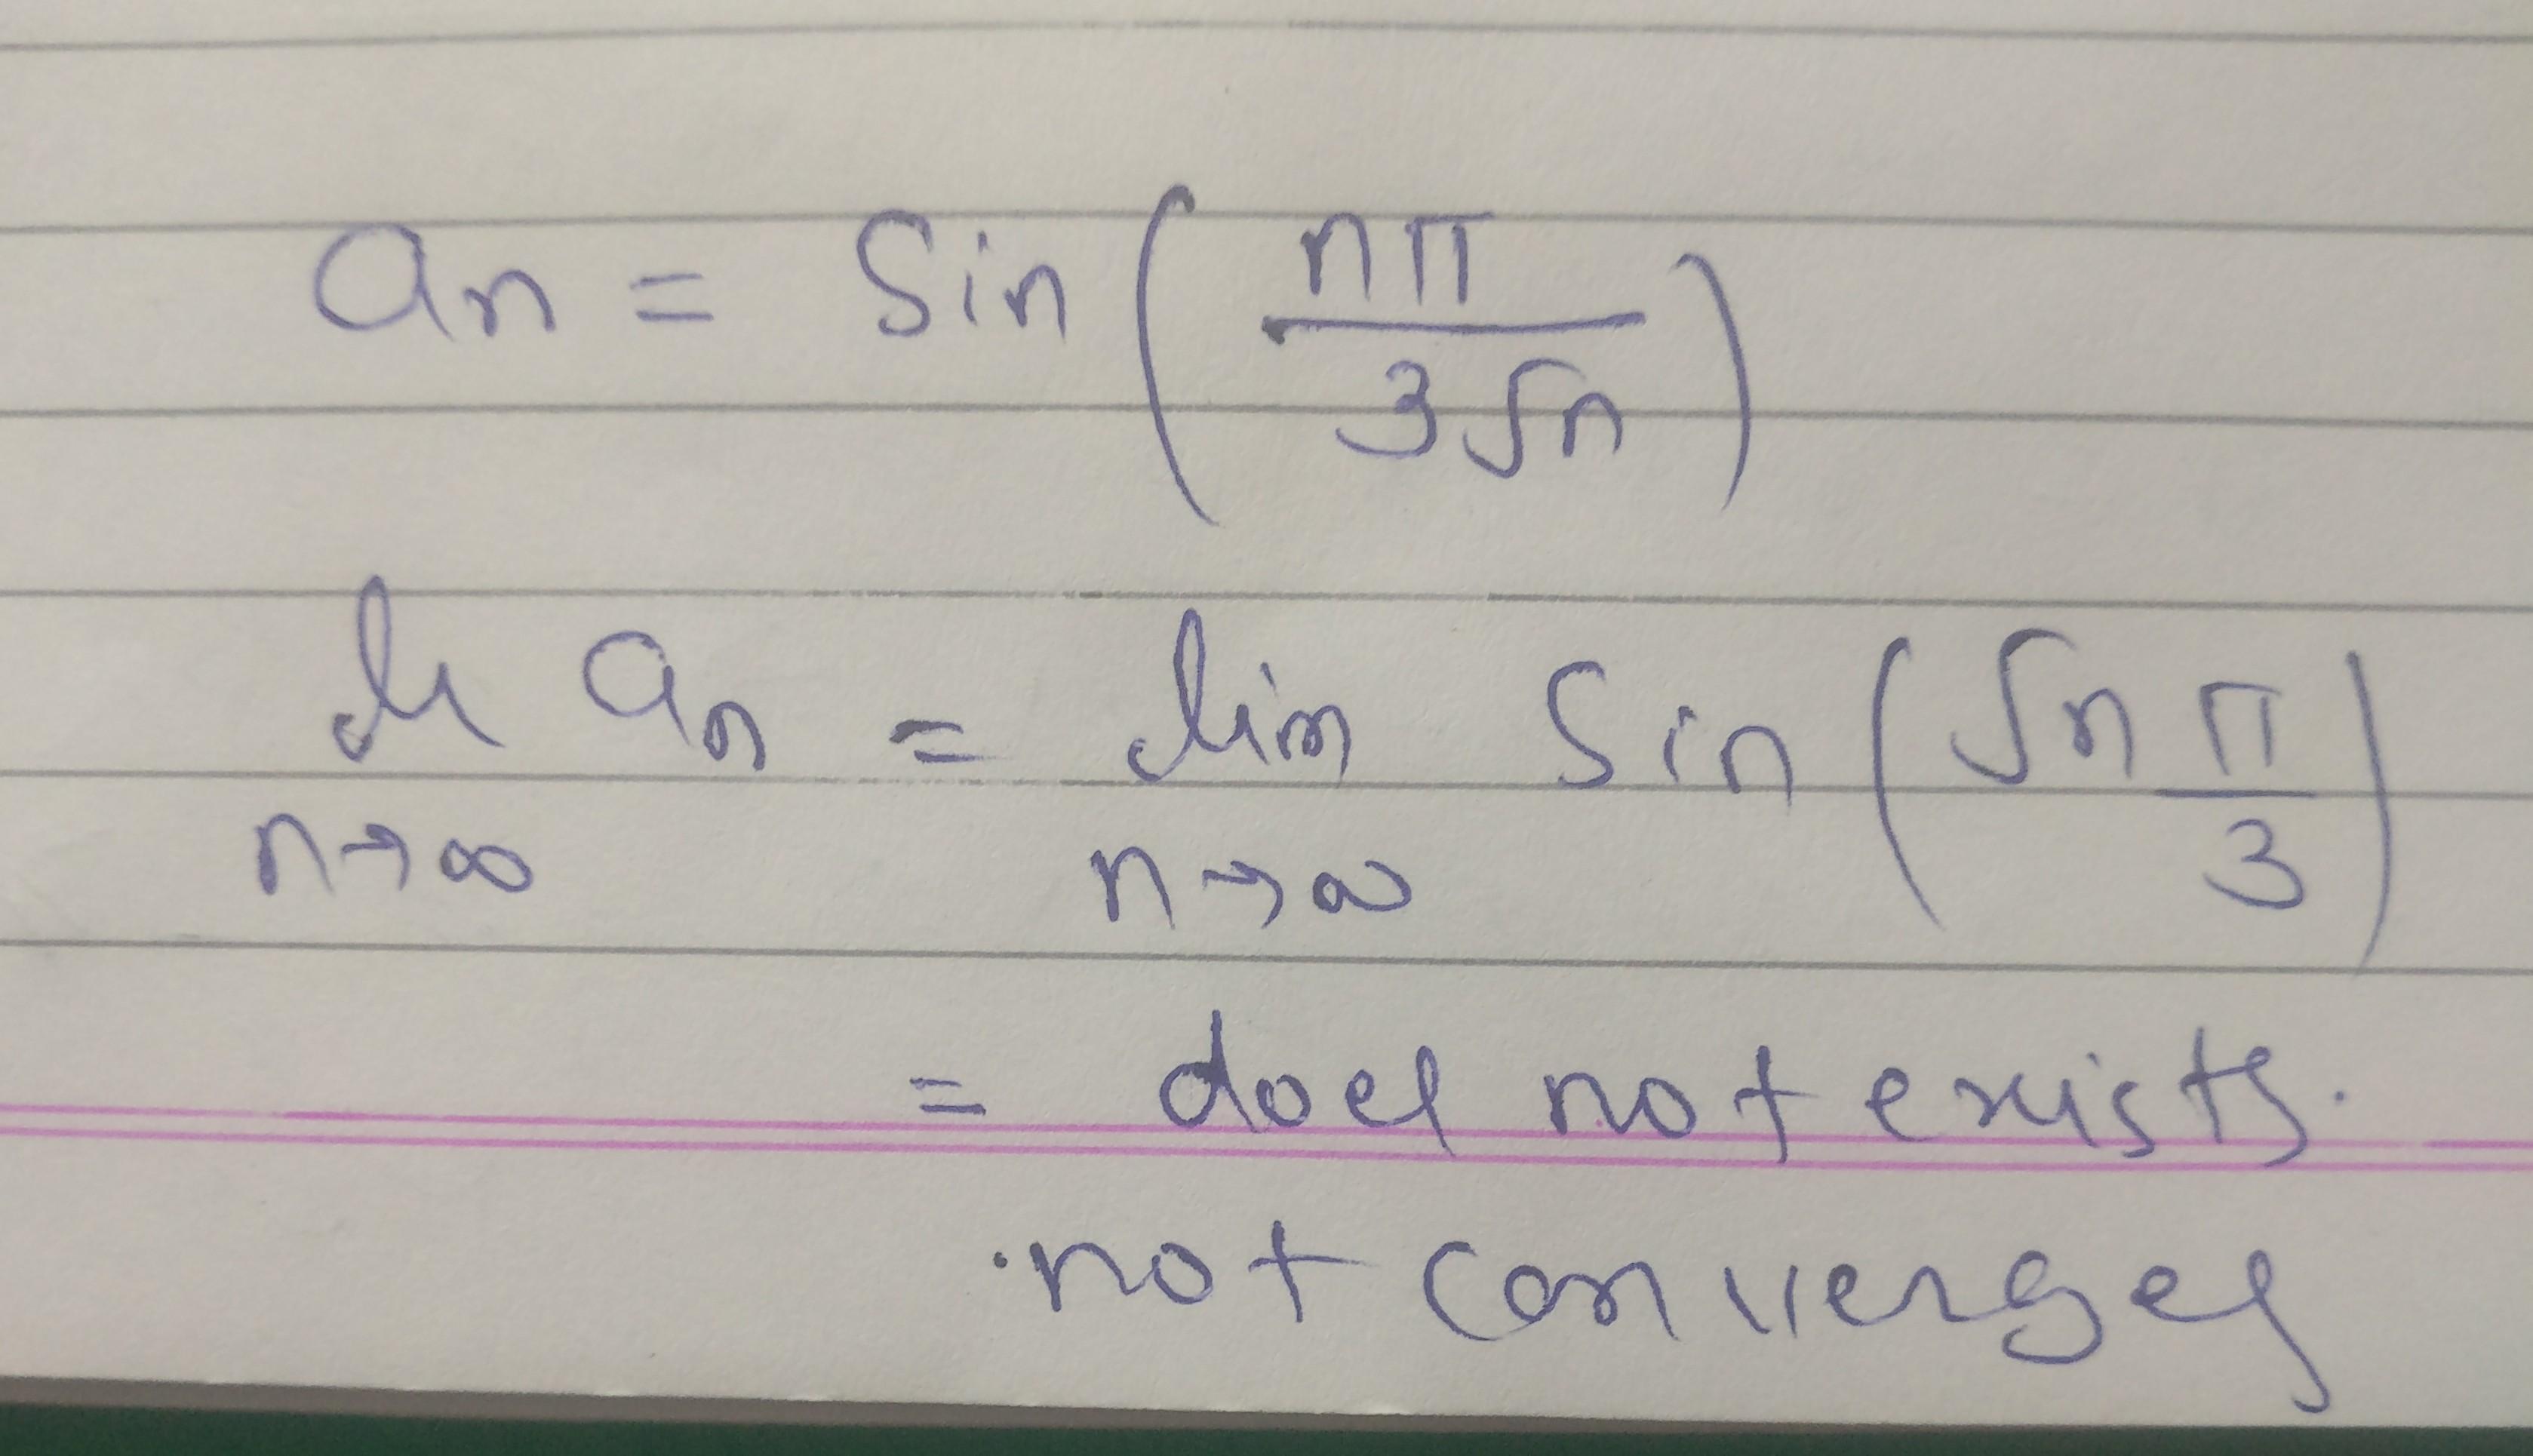 an = Sin (nπ / 3√n)
lt an = lim Sin (√n π/3)
n→∞ n→∞
= does not exists.
not converges